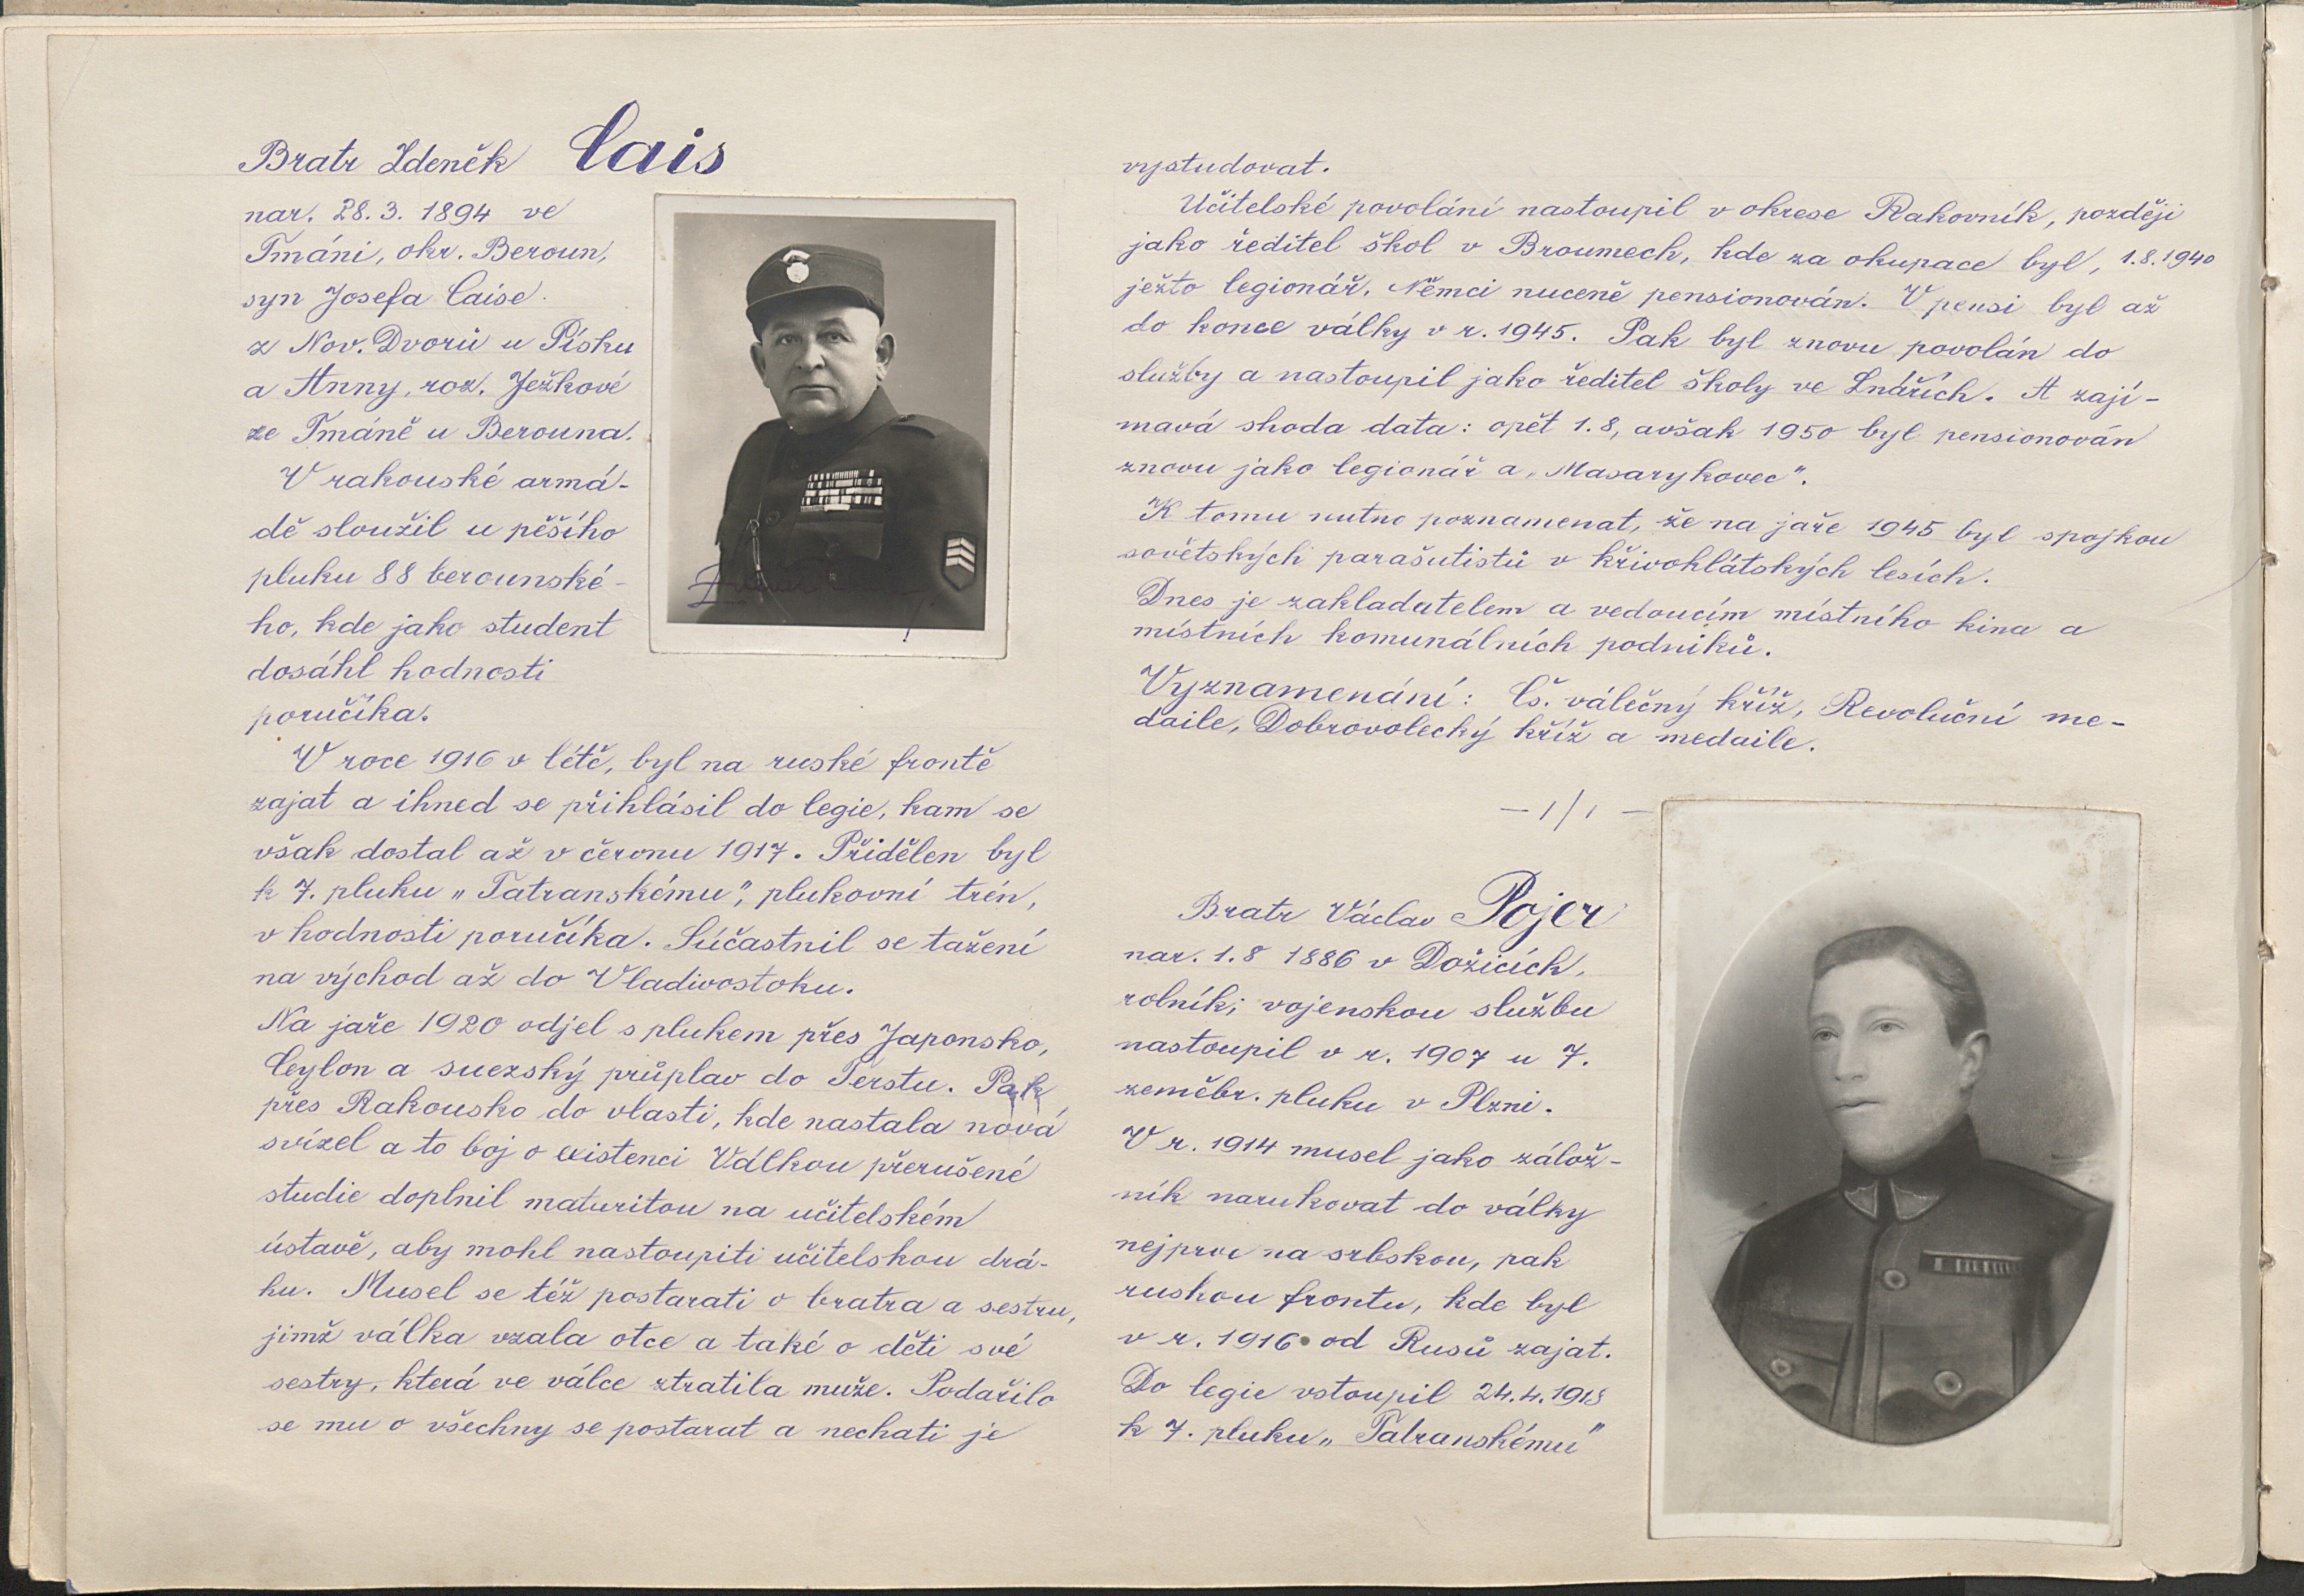 Bratr Zdeněk Cais
nar. 28. 3. 1894 ve
Tmáni, okr. Beroun,
syn Josefa Caise
z Nov. Dvorů u Písku
a Anny, roz. Ježkové
ze Tmáně u Berouna.
V rakouské armá-
dě sloužil u pěšího
pluku 88 berounské-
ho, kde jako student
dosáhl hodnosti
poručíka.
V roce 1916 v létě, byl na ruské frontě
zajat a ihned se přihlásil do legie, kam se
však dostal až v červnu 1917. Přidělen byl
k 7. pluku „Tatranskému", plukovní trén,
v hodnosti poručíka. Súčastnil se tažení
na východ až do Vladivostoku.
Na jaře 1920 odjel s plukem přes Japonsko,
Ceylon a suezský průplav do Terstu. Pak
přes Rakousko do vlasti, kde nastala nová
svízel a to boj o existenci Válkou přerušené
studie doplnil maturitou na učitelském
ústavě, aby mohl nastoupiti učitelskou drá-
hu. Musel se též postarati o bratra a sestru,
jimž válka vzala otce a také o děti své
sestry, která ve válce ztratila muže. Podařilo
se mu o všechny se postarat a nechati je
vystudovat.
Učitelské povolání nastoupil v okrese Rakovník, později
jako ředitel škol v Broumech, kde za okupace byl, 1.8.1940
ježto legionář, Němci nuceně pensionován. V pensi byl až
do konce války v r. 1945. Pak byl znovu povolán do
služby a nastoupil jako ředitel školy ve Lnářích. A zají-
mavá shoda data: opět 1.8, avšak 1950 byl pensionován
znovu jako legionář a „Masarykovec".
K tomu nutno poznamenat, že na jaře 1945 byl spojkou
sovětských parašutistů v křivoklátských lesích.
Dnes je zakladatelem a vedoucím místního kina a
místních komunálních podniků.
Vyznamenání: Čs. válečný kříž, Revoluční me-
daile, Dobrovolecký kříž a medaile.
Bratr Václav Pojer
nar. 1.8 1886 v Dožicích,
rolník; vojenskou službu
nastoupil v r. 1907 u 7.
zeměbr. pluku v Plzni.
V r. 1914 musel jako zálož-
ník narukovat do války
nejprve na srbskou, pak
ruskou frontu, kde byl
v r. 1916 od Rusů zajat.
Do legie vstoupil 24.4.1918
k 7. pluku „Tatranskému"